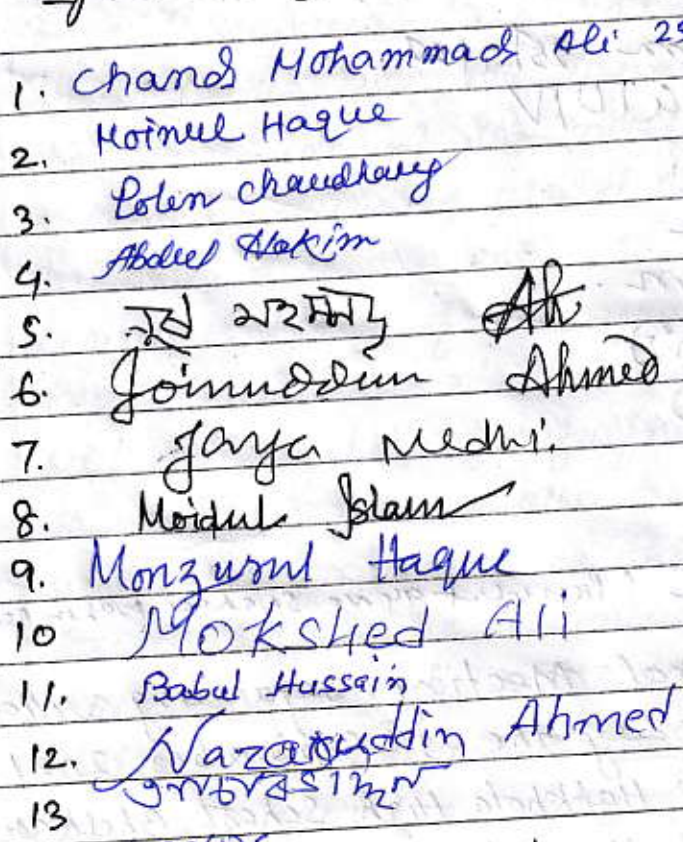 1. Chand Mohammad Ali
2. Moinul Haque
3. Polen Chaudhary
4. Abdul Hakim
5. নুৰ মহম্মদ Ali
6. Joinuddin Ahmed
7. Jaya Medhi.
8. Moidul Islam
9. Monzurul Haque
10 Mokshed Ali
11. Babul Hussain
12. Nazaruddin Ahmed
13